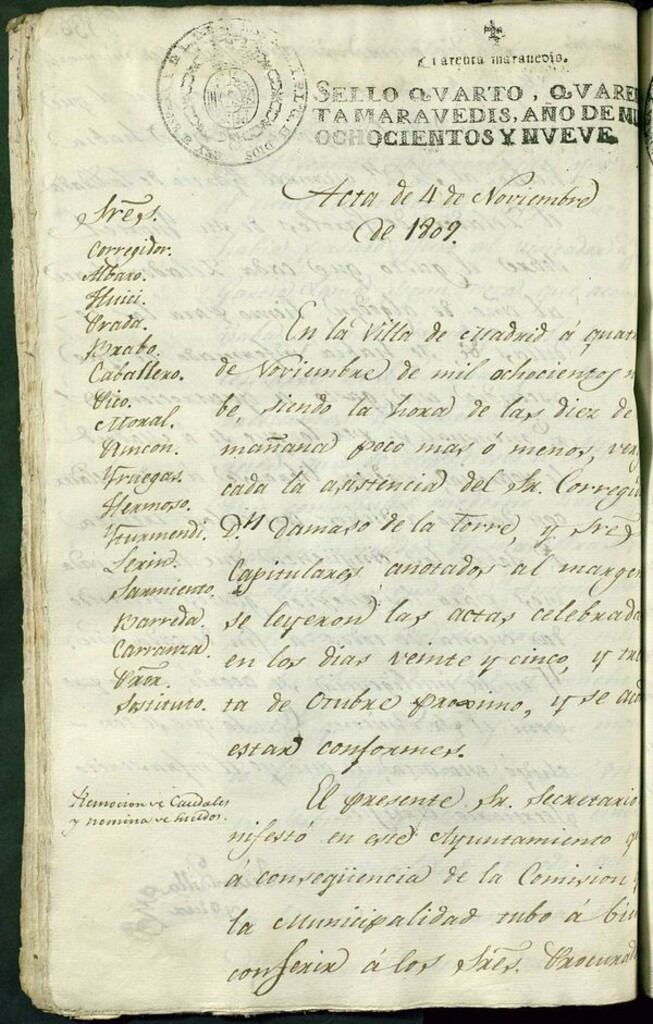 Quarenta maravedis.
SELLO QVARTO, QVARE
TA MARAVEDIS, AÑO DE MI
OCHOCIENTOS Y NVEVE.
Acta de 4 de Noviembre
de 1809.
Sres.
Corregidor.
Albaro.
Huici.
Prada.
Brabo.
Caballero.
Pico.
Moral.
Rincon.
Yruegas.
Hermoso.
Yturmendi.
Lerin.
Sarmiento.
Barreda.
Carranza.
Pror.
Sostituto.
En la Villa de Madrid á quat
de Noviembre de mil ochocientos n
be, siendo la hora de las diez de
mañana poco mas ó menos, ver
cada la asistencia del Sr. Corregi
Dn. Damaso de la Torre, y Sres
Capitulares anotados al margen
se leyeron las actas celebrada
en los dias veinte y cinco, y tre
ta de Octubre proximo, y se
estar conformes.
Remocion de Caudales
y nomina de sueldos.
El presente Sr. Secretario
nifestó en este Ayuntamiento q
á conseqüencia de la Comision
la Municipalidad tubo á bi
conferir á los Sres. Procurad